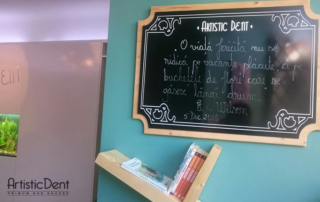 Artistic Dent
O viață fericită nu se
ridică pe vacanțe plăcute, ci pe
buchetele de flori care se
găsesc lângă drum.
E. Wilson
5 Dec
ArtisticDent